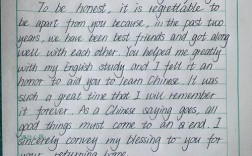 To be honest, it is regrettable to
be apart from you because, in the past two
years, we have been best friends and got along
well with each other. You helped me greatly
with my English study and I felt it an
honor to aid you to learn Chinese. It was
such a great time that I will remember
it forever. As a Chinese saying goes, all
good things must come to an end. I
sincerely convey my blessing to you for
your returning home